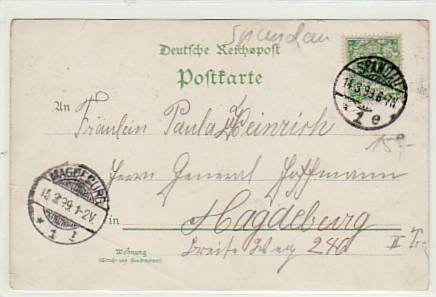 Spandau
Deutsche Reichspost
Postkarte
SPANDAU
14.3.99.6-7N.
* 1 e *
An
Fräulein Paula Heinrich
Herrn General Hoffmann
MAGDEBURG
15.3.99.1-2V.
* 1 l
in Magdeburg
Wohnung
Breite Weg 240 II Tr.